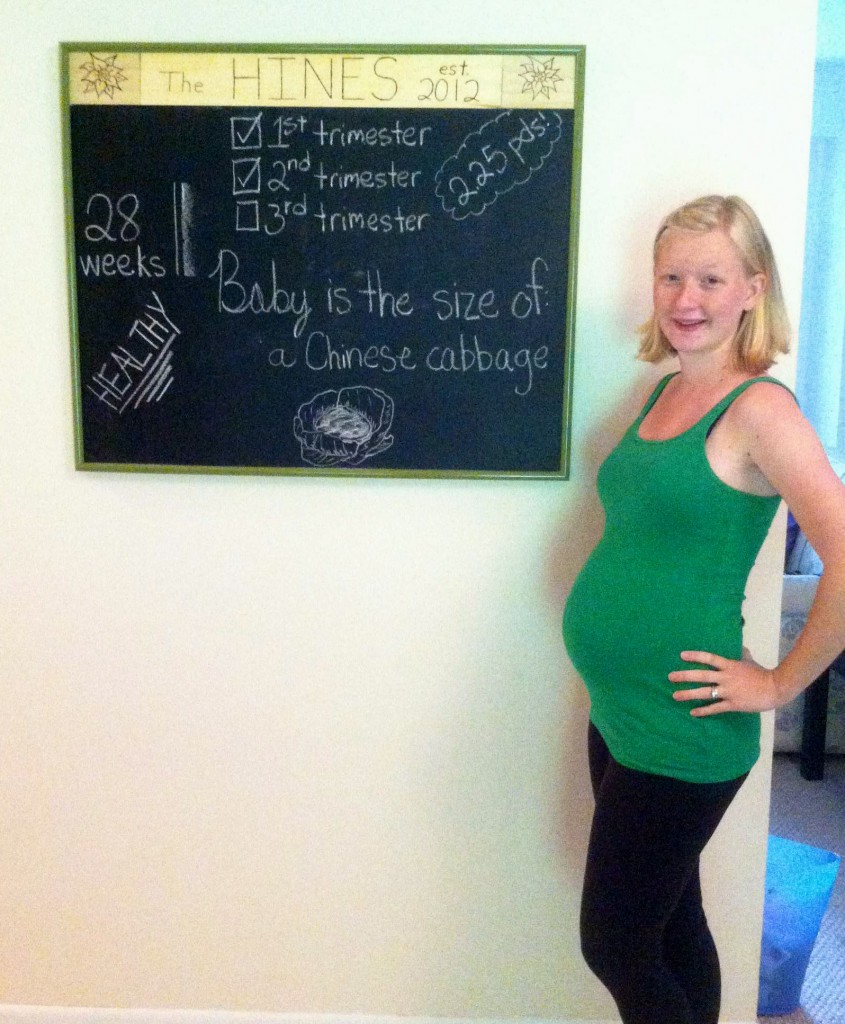 The HINES est. 2012
1st trimester
2nd trimester
3rd trimester
2.25 pds!
28
weeks
Baby is the size of:
a Chinese cabbage
HEALTHY